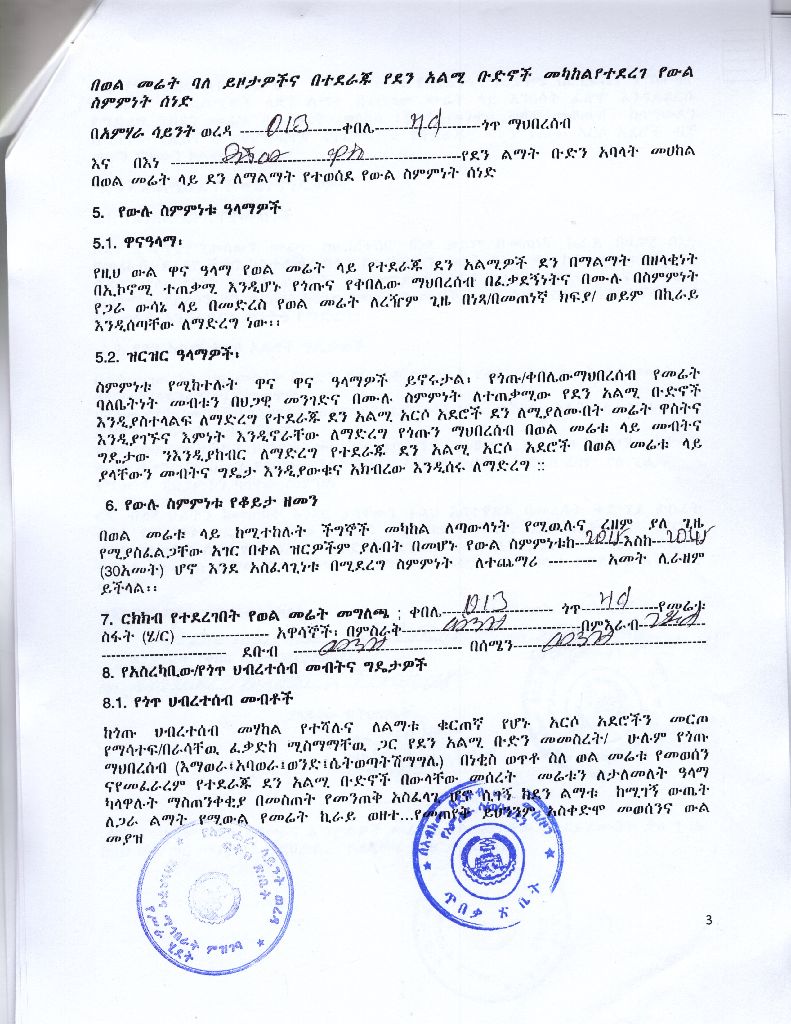 በወል መሬት ባለ ይዞታዎችና በተደራጁ የደን አልሚ ቡድኖች መካከልየተደረገ የውል
ስምምነት ሰነድ
በአምሃራ ሳይንት ወረዳ 013 ቀበሌ ጎጥ ማህበረሰብ
እና በእነ የደን ልማት ቡድን አባላት መሀከል
በወል መሬት ላይ ደን ለማልማት የተወሰደ የውል ስምምነት ሰነድ
5. የውሉ ስምምነቱ ዓላማዎች
5.1. ዋናዓላማ፡
የዚህ ውል ዋና ዓላማ የወል መሬት ላይ የተደራጁ ደን አልሚዎች ደን በማልማት በዘላቂነት
በኢኮኖሚ ተጠቃሚ እንዲሆኑ የጎጡና የቀበሌው ማህበረሰብ በፈቃደኝነትና በሙሉ በስምምነት
የጋራ ውሳኔ ላይ በመድረስ የወል መሬት ለረዥም ጊዜ በነጻ/በመጠነኛ ክፍያ/ ወይም በኪራይ
እንዲሰጣቸው ለማድረግ ነው፡፡
5.2. ዝርዝር ዓላማዎች፡
ስምምነቱ የሚከተሉት ዋና ዋና ዓላማዎች ይኖሩታል፡ የጎጡ/ቀበሌውማህበረሰብ የመሬት
ባለቤትነት መብቱን በህጋዊ መንገድና በሙሉ ስምምነት ለተጠቃሚው የደን አልሚ ቡድኖች
እንዲያስተላልፍ ለማድረግ የተደራጁ ደን አልሚ አርሶ አደሮች ደን ለሚያለሙበት መሬት ዋስትና
እንዲያገኙና እምነት እንዲኖራቸው ለማድረግ የጎጡን ማህበረሰብ በወል መሬቱ ላይ መብትና
ግዴታው ንእንዲያከብር ለማድረግ የተደራጁ ደን አልሚ አርሶ አደሮች በወል መሬቱ ላይ
ያላቸውን መብትና ግዴታ እንዲያውቁና አክብረው እንዲሰሩ ለማድረግ ::
6. የውሉ ስምምነቱ የቆይታ ዘመን
በወል መሬቱ ላይ ከሚተከሉት ችግኞች መካከል ለጣውላነት የሚዉሉና ረዘም ያለ ጊዜ
የሚያስፈልጋቸው አገር በቀል ዝርዎችም ያሉበት በመሆኑ የውል ስምምነቱከ 2015 እስከ 2045
(30አመት) ሆኖ እንደ አስፈላጊነቱ በሚደረግ ስምምነት ለተጨማሪ ---------- አመት ሊራዘም
ይችላል፡፡
7. ርክክብ የተደረገበት የወል መሬት መግለጫ ; ቀበሌ 013 ጎጥ የመሬቱ
ስፋት (ሄ/ር) ------------------ አዋሳኞች፡ በምስራቅ በምእራብ
ደቡብ በሰሜን
8. የአስረካቢው/የጎጥ ህብረተሰብ መብትና ግዴታዎች
8.1. የጎጥ ህብረተሰብ መብቶች
ከጎጡ ህብረተሰብ መሃከል የተሻሉና ለልማቱ ቁርጠኛ የሆኑ አርሶ አደሮችን መርጦ
የማሳተፍ/በራሳቸዉ ፈቃድከ ሚስማማቸዉ ጋር የደን አልሚ ቡድን መመስረት/ ሁሉም የጎጡ
ማህበረሰብ (እማወራ፣አባወራ፣ወንድ፣ሴትወጣትሽማግሌ) በነቂስ ወጥቶ ስለ ወል መሬቱ የመወሰን
ናየመፈራረም የተደራጁ ደን አልሚ ቡድኖች በውላቸው መሰረት መሬቱን ለታለመለት ዓላማ
ካላዋሉት ማስጠንቀቂያ በመስጠት የመንጠቅ አስፈላጊ ሆኖ ሲገኝ ከደን ልማቱ ከሚገኝ ውጤት
ለጋራ ልማት የሚውል የመሬት ኪራይ ወዘተ...የመጠየቅ ይህንንም አስቀድሞ መወሰንና ውል
መያዝ
የአምሃራ ሳይንት ወረዳ
ፍትህ ጽ/ቤት
ምዝገባ
የሥራ ሂደት
ጥበቃ ጽ ቤት
3